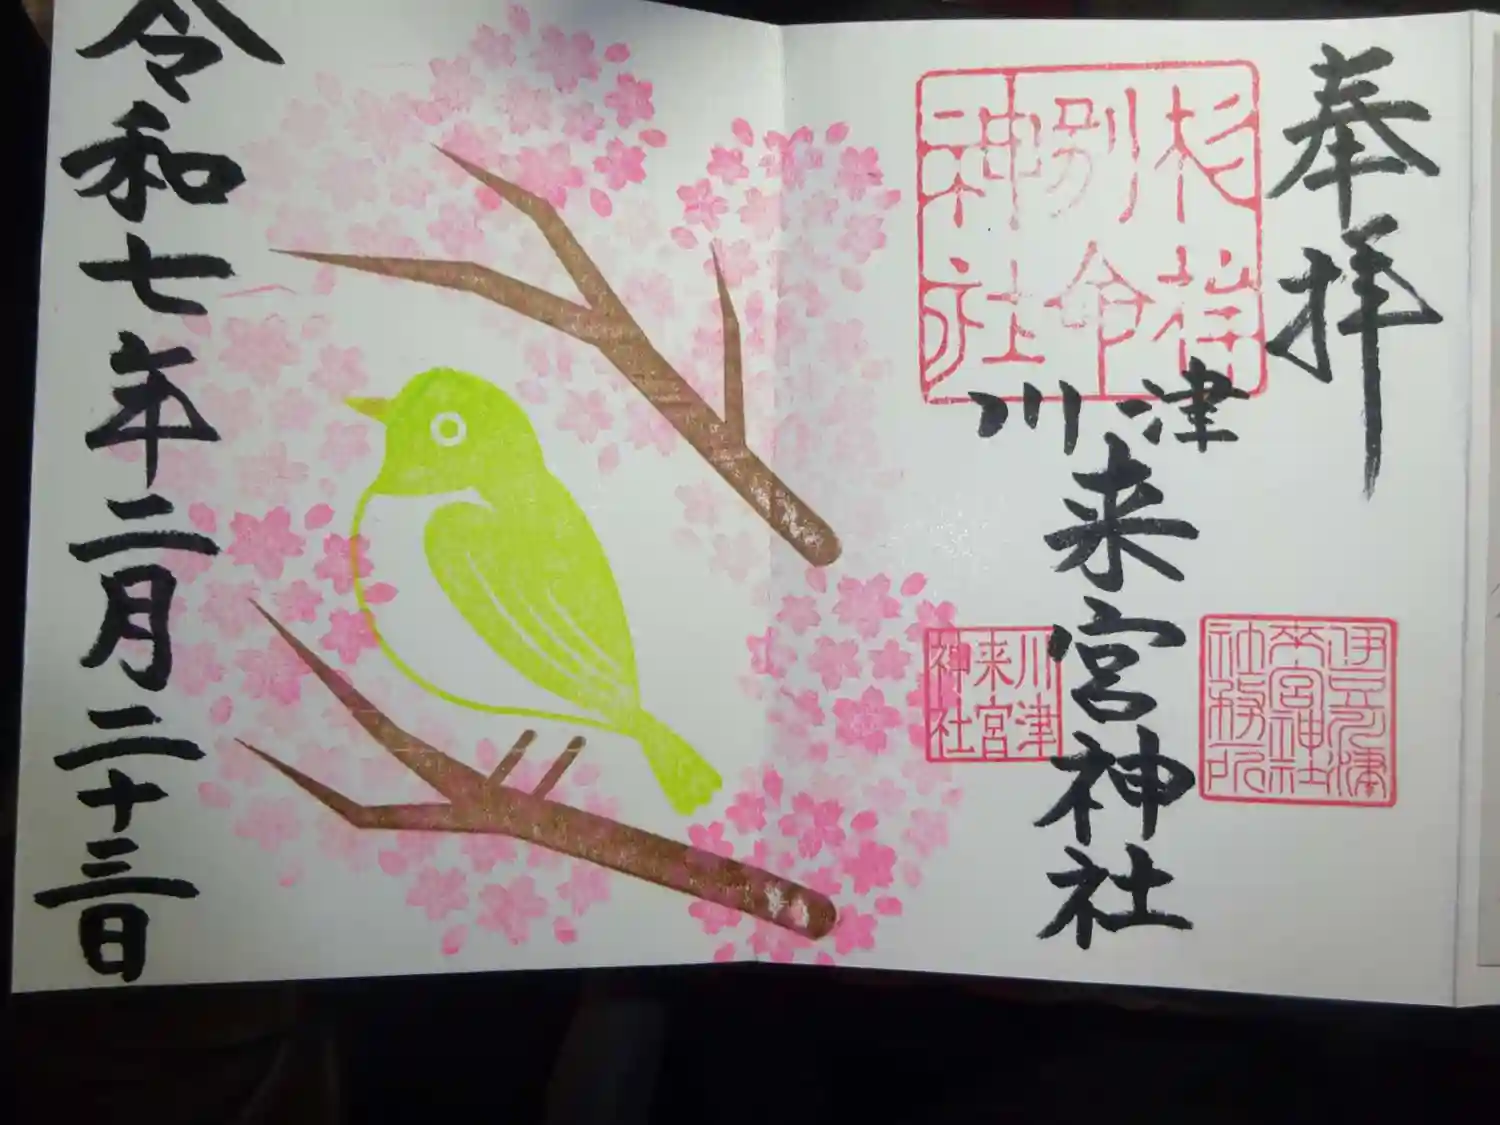 奉拝
杉桙
別命
神社
川津
来宮神社
川津
来宮
神社
伊豆川津
来宮神社
社務所
令和七年二月二十三日